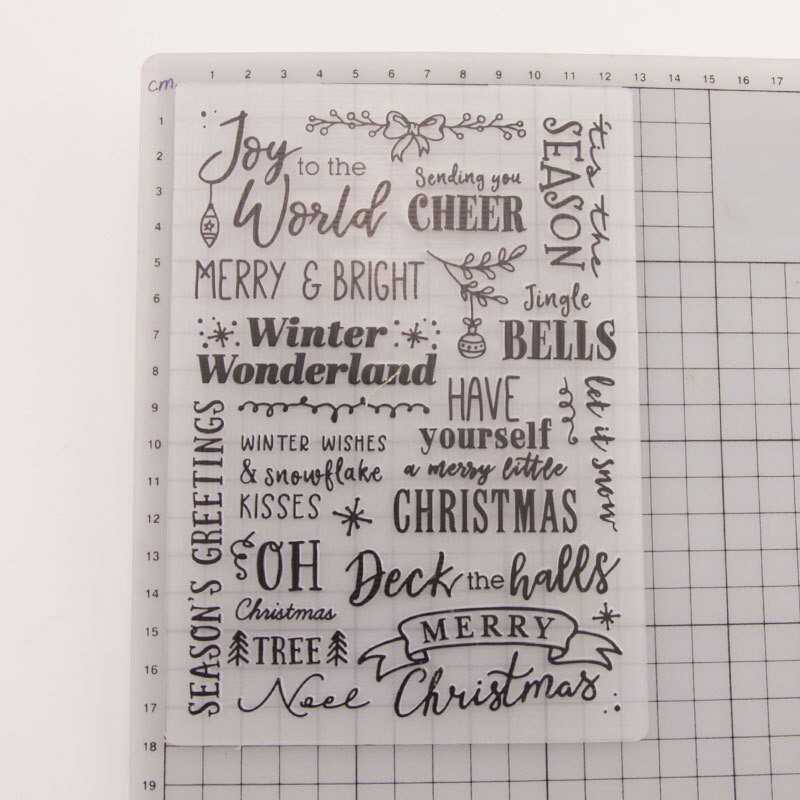 cm.
1 2 3 4 5 6 7 8 9 10 11 12 13 14 15 16 17
1
2
3
4
5
6
7
8
9
10
11
12
13
14
15
16
17
18
19
Joy
to the
World
Sending you
CHEER
'tis the
SEASON
MERRY & BRIGHT
Jingle
BELLS
Winter
Wonderland
HAVE
yourself
a merry little
CHRISTMAS
let it snow
SEASON'S GREETINGS
WINTER WISHES
& snowflake
KISSES
OH
Christmas
TREE
Deck the halls
MERRY
Christmas
Noel